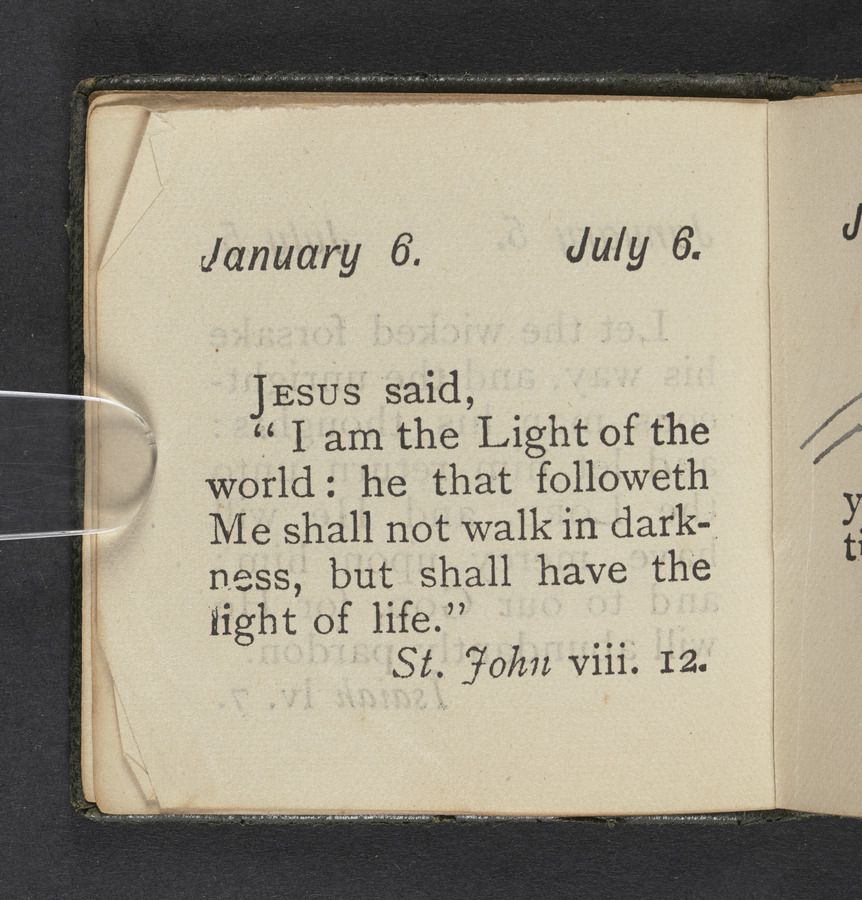 January 6. July 6.
JESUS said,
“ I am the Light of the
world : he that followeth
Me shall not walk in dark-
ness, but shall have the
light of life.”
St. John viii. 12.